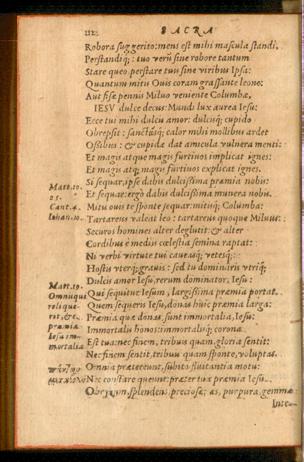 SACRA
Robora suggerito: mens est mihi mascula standi,
Perstandiq; : tuo verũ sine robore tantum
Stare queo perstare tuis sine viribus Ipsa:
Quantum mitis Ouis coram grassante leone:
Aut fisæ pennis Miluo veniente Columbæ.
IESV dulce decus: Mundi lux aurea Iesu:
Ecce tui mihi dulcis amor: dulcisq; cupido
Obrepsit: sanctusq; calor mihi mollibus ardet
Ossibus: & cupidæ dat amicula vulnera menti:
Et magis atque magis furtiuos implicat ignes:
Et magis atq; magis furtiuos explicat ignes.
Matt.10. Si sequar, ipse dabis dulcissima præmia nobis:
Et sequar: ergo dabis dulcissima munera nobis.
Cant. Mitu ouis te sponte sequar: mitisq; Columba:
Iohan.10. Tartareus valeat leo: tartareus quoque Miluus:
Securos homines alter deglutit: & alter
Cordibus è medijs cœlestia semina raptat:
Ni verbi virtute tui caueasq; vetesq; :
Hostis vterq; grauis: sed tu dominaris vtriq;
Dulcis amor Iesu, rerum dominator, Iesu:
Matt.19. Qui sequitur Iesum, largissima præmia portat.
Omnisqui Quem sequeris Iesu, donas huic præmia larga:
reliquerit, &c. Præmia quæ donas sunt immortalia, Iesu:
præmia Immortalis honos: immortalisq; corona
Iesu immortalia Est tua: nec finem, tribuis quam, gloria sentit:
Nec finem sentit, tribuis quam sponte, voluptas.
Omnia prætereunt, subito fluitantia motu:
Nec constare queunt: præter tua præmia Iesu.
Obryzum, splendens, preciosa; as, purpura, gemmæ